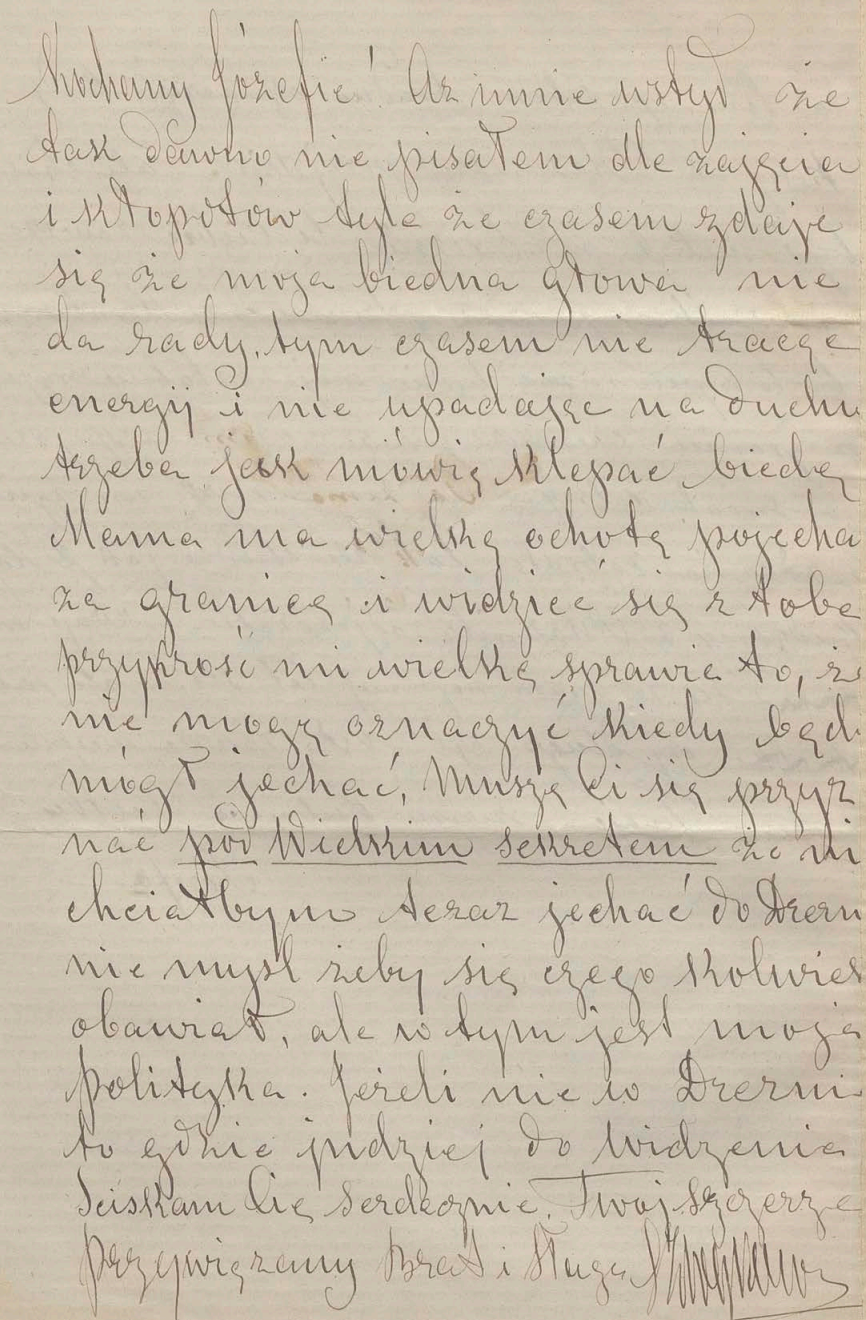 Kochany Józefie! Aż mnie wstyd że
tak dawno nie pisałem dla zajęcia
i kłopotów tyle że czasem zdaje
się że moja biedna głowa nie
da rady, tym czasem nie tracąc
energij i nie upadając na duchu
trzeba jak mówią klepać biedę
Mama ma wielką ochotę pojecha
za granicę i widzieć się z tobą
przykrość mi wielką sprawia to, że
nie mogę oznaczyć kiedy będ
mógł jechać, Muszę Ci się przyz
nać pod Wielkim sekretem że ni
chciałbym teraz jechać do Drezn
nie myśl żeby się czego kolwiek
obawiał, ale w tym jest moja
polityka. Jeżeli nie w Drezni
to gdzie indziej do widzenia
Sciskam Cię serdecznie. Twój szczerze
przywiązany Brat i Sługa